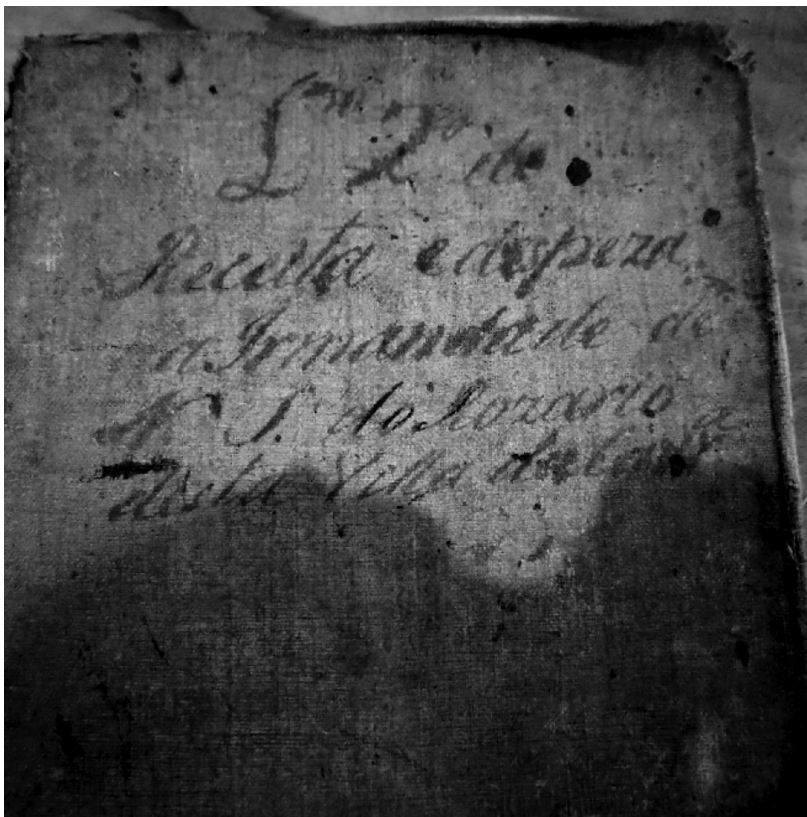 L.ro 2.o de
Receita e despeza
a Irmandade de
N. S. do Rozario
desta Villa da